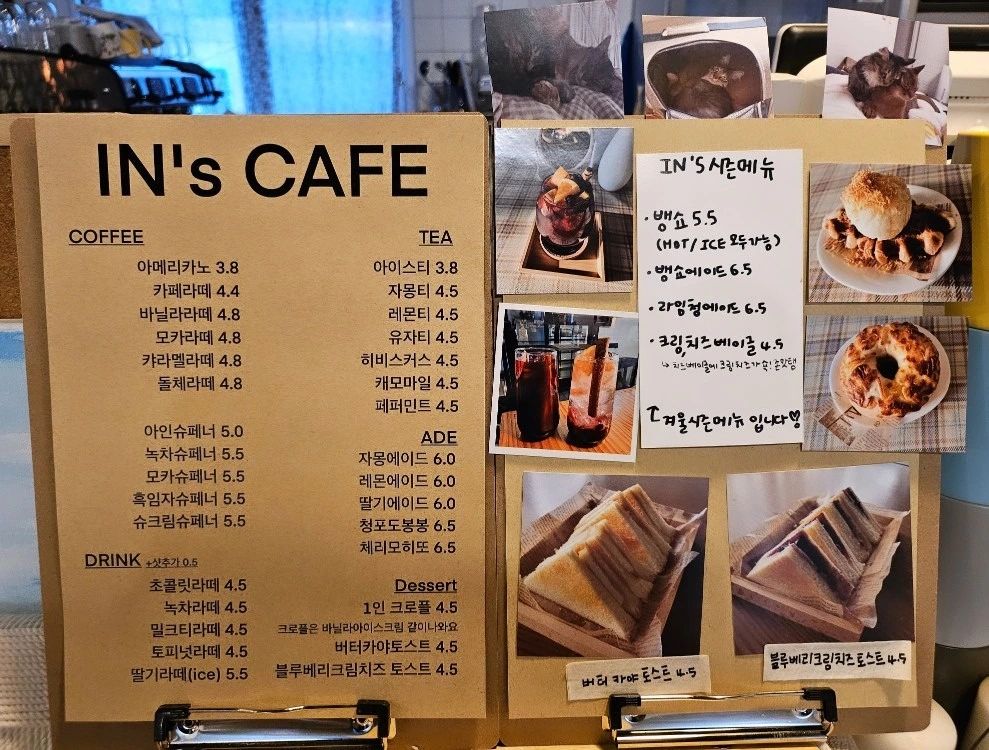 IN's CAFE
COFFEE
아메리카노 3.8
카페라떼 4.4
바닐라라떼 4.8
모카라떼 4.8
캬라멜라떼 4.8
돌체라떼 4.8
아인슈페너 5.0
녹차슈페너 5.5
모카슈페너 5.5
흑임자슈페너 5.5
슈크림슈페너 5.5
DRINK +샷추가 0.5
초콜릿라떼 4.5
녹차라떼 4.5
밀크티라떼 4.5
토피넛라떼 4.5
딸기라떼(ice) 5.5
TEA
아이스티 3.8
자몽티 4.5
레몬티 4.5
유자티 4.5
히비스커스 4.5
캐모마일 4.5
페퍼민트 4.5
ADE
자몽에이드 6.0
레몬에이드 6.0
딸기에이드 6.0
청포도봉봉 6.5
체리모히또 6.5
Dessert
1인 크로플 4.5
크로플은 바닐라아이스크림 같이나와요
버터카야토스트 4.5
블루베리크림치즈 토스트 4.5
IN'S 시즌메뉴
· 뱅쇼 5.5
(HOT/ICE 모두가능)
· 뱅쇼에이드 6.5
· 라임청에이드 6.5
· 크림치즈베이글 4.5
↳ 치즈베이글에 크림치즈가 쏙! 존맛탱
↑ 겨울시즌메뉴 입니다♡
버터 카야 토스트 4.5
블루베리크림치즈토스트 4.5